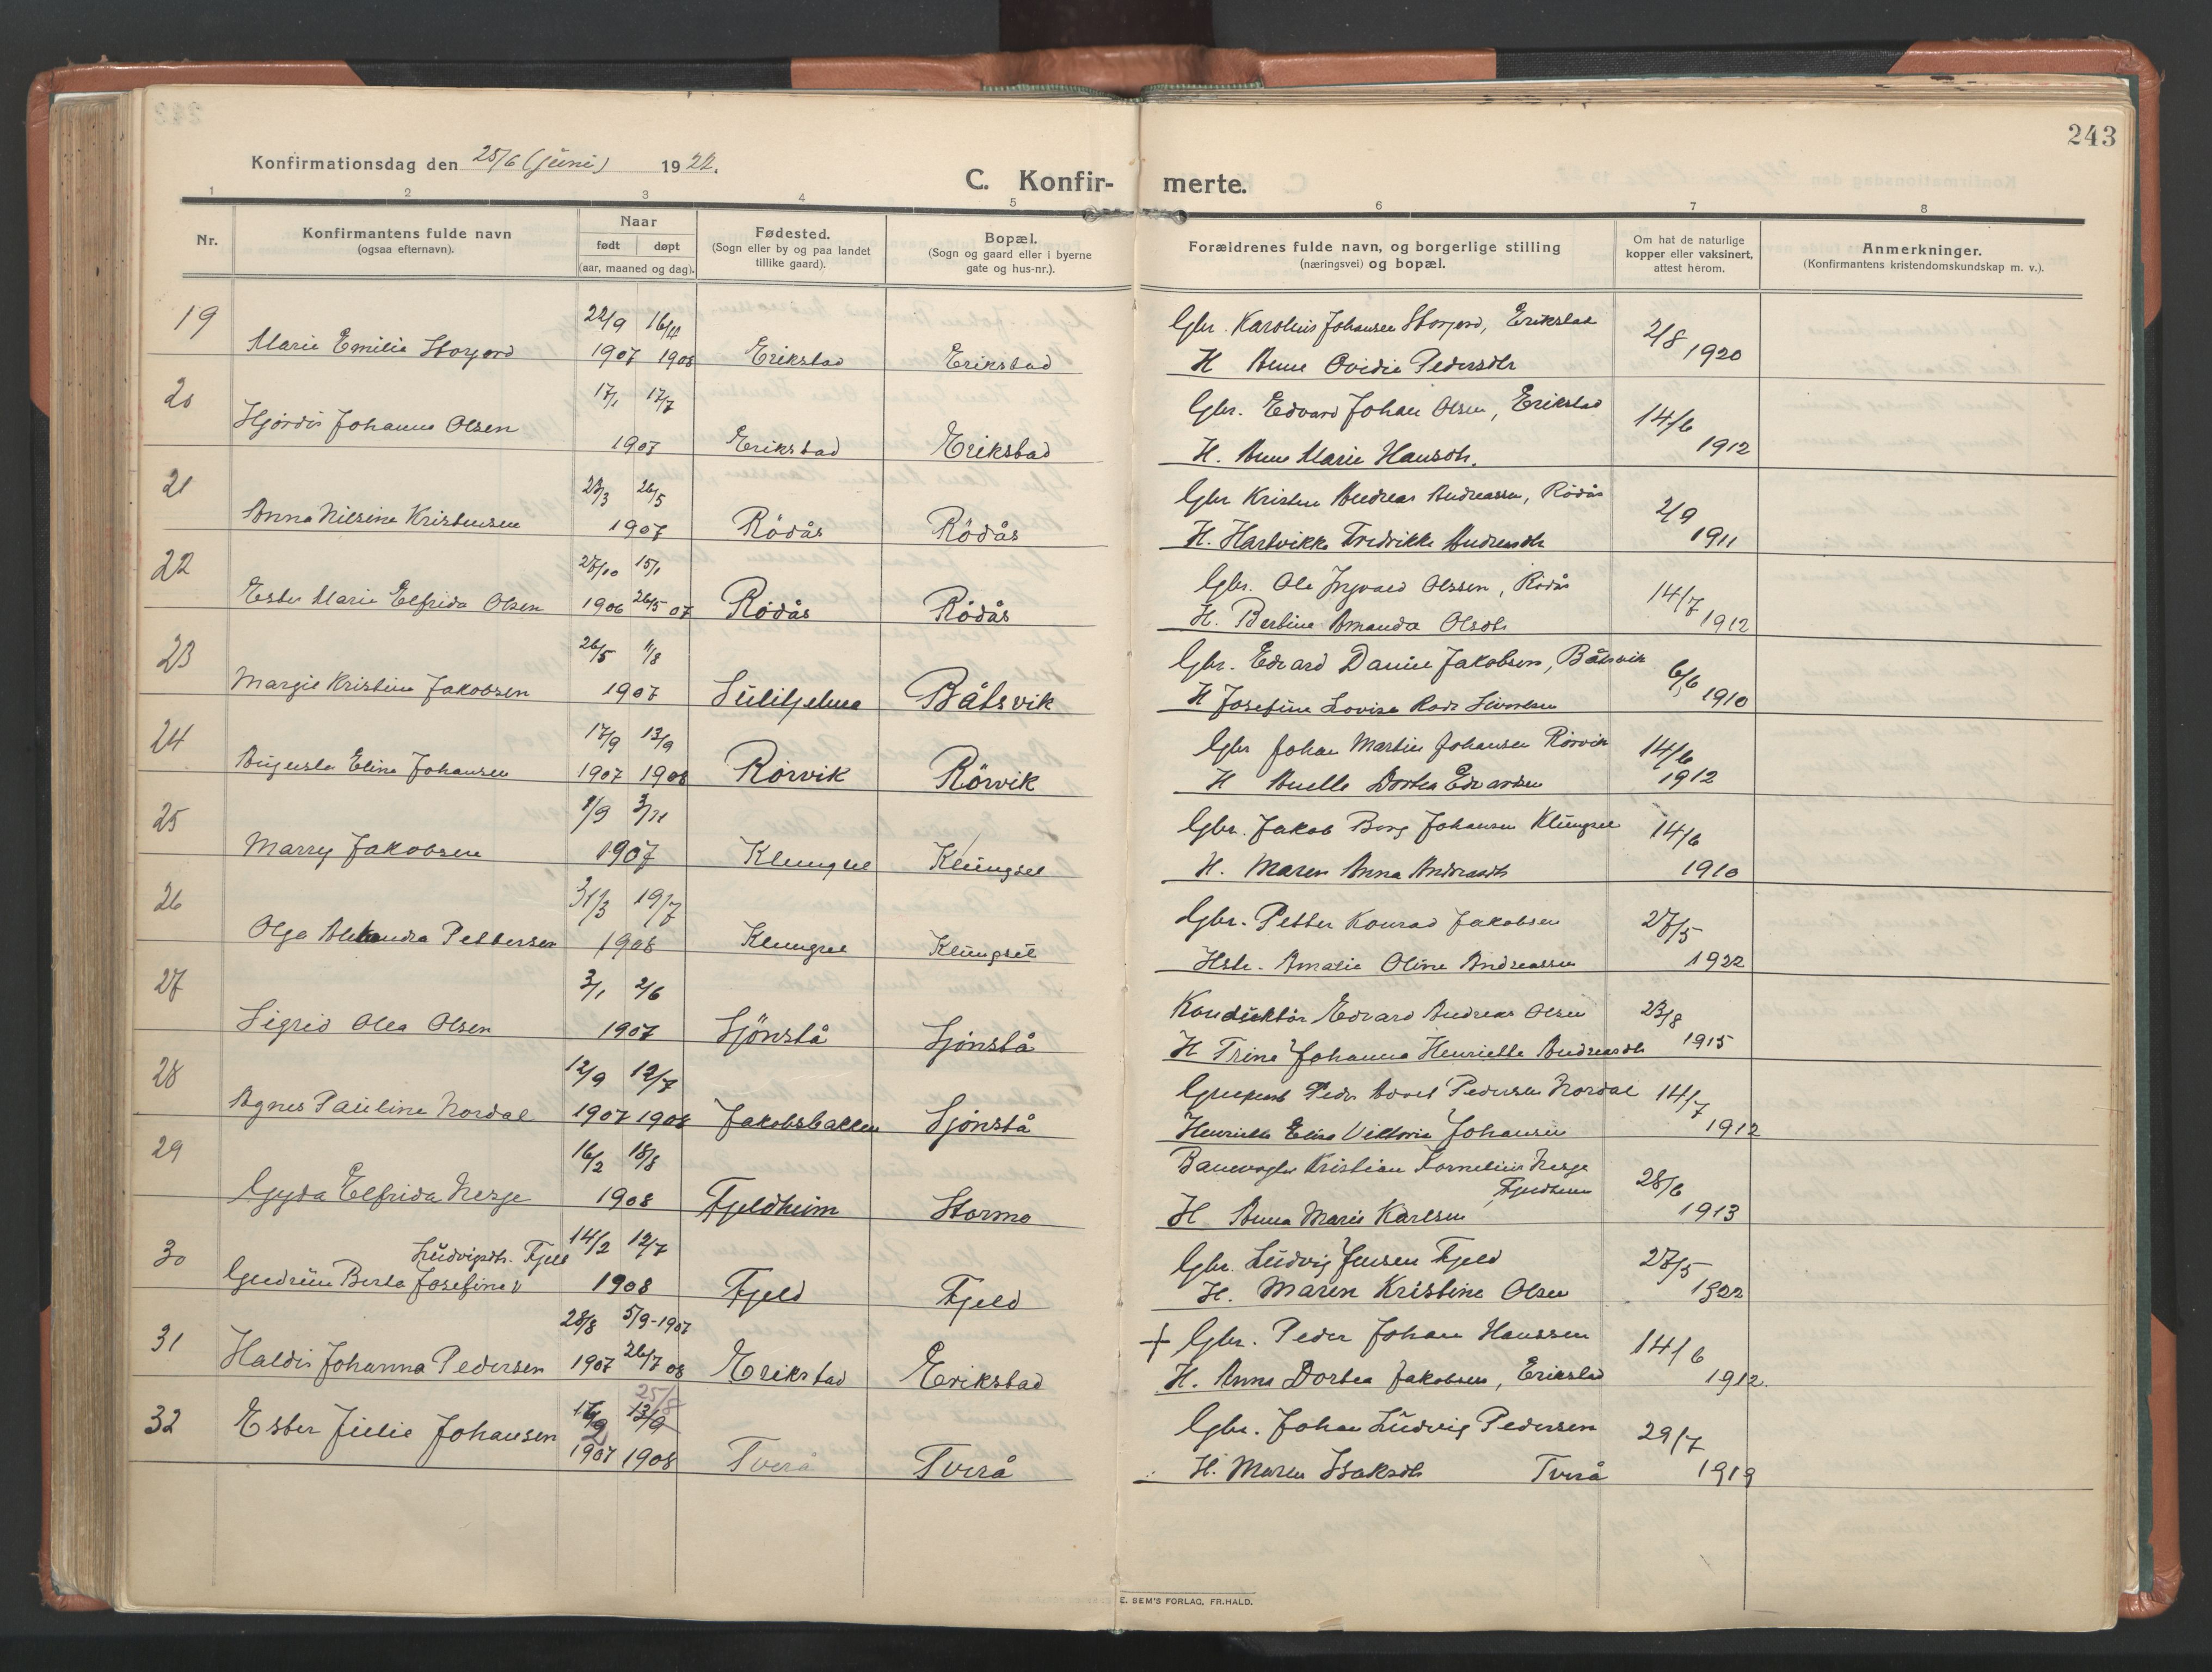 243
Konfirmationsdag den 25/6 (juni) 1922.
C. Konfir- merte.
1 2 3 4 5 6 7 8
Nr.
Konfirmantens fulde navn
(ogsaa efternavn).
Naar
født døpt
(aar, maaned og dag).
Fødested.
(Sogn eller by og paa landet
tillike gaard).
Bopæl.
(Sogn og gaard eller i byerne
gate og hus-nr.).
Forældrenes fulde navn, og borgerlige stilling
(næringsvei) og bopæl.
Om hat de naturlige
kopper eller vaksinert,
attest herom.
Anmerkninger.
(Konfirmantens kristendomskundskap m. v.).
19 22/9 16/4 Gbr. Karolius Johansen Storjord, Erikstad 2/8
Marie Emilie Storjord 1907 1908 Erikstad Erikstad H Anne Ovidie Pedersdtr 1920
20 17/1 17/7 Gbr. Edvard Johan Olsen, Erikstad 14/6
Hjördis Johanne Olsen 1907 Erikstad Erikstad H. Anne Marie Hansdtr. 1912
21 23/3 26/5 Gbr Kristen Andreas Andreassen, Rödås 2/9
Anna Nilsine Kristensen 1907 Rödås Rödås H. Hartvikke Fredrikke Andreasdtr 1911
22 27/10 15/1 Gbr. Ole Ingvald Olssen, Rödås 14/7
Ester Marie Elfrida Olsen 1906 26/5 07 Rödås Rödås H. Bertine Amanda Olsdtr 1912
23 26/5 11/8 Gbr. Edvard Daniel Jakobsen, Båtsvik 6/6
Margit Kristine Jakobsen 1907 Sulitjelma Båtsvik H Josefine Lovise 1910
24 17/9 13/9 Gbr Johan Martin Johansen Rörvik 14/6
Augusta Eline Johansen 1907 1908 Rörvik Rörvik H Anelle Dortea Edvardsen 1912
25 1/9 3/11 Gbr. Jakob Berg Johansen Klungset 14/6
Marry Jakobsen 1907 Klungset Klungset H. Maren Anna Andreasdtr 1910
26 31/3 19/7 Gbr. Petter Konrad Jakobsen 27/5
Olga Aleksandra Pettersen 1908 Klungset Klungset Hstr. Amalie Oline Andreassen 1922
27 3/1 2/6 Konduktör Edvard Andreas Olsen 23/8
Sigrid Olea Olsen 1907 Sjönstå Sjönstå H Trine Johanna Henriette Andreasdtr 1915
28 12/9 12/7 Peder Pedersen Nordal 14/7
Agnes Pauline Nordal 1907 1908 Jakobsbakken Sjönstå Henriette Elise Viktoria Johansen 1912
29 16/2 18/8 Banevogter Kristian Kornelius Nesje
Fjeldheim 28/6
Gyda Elfrida Nesje 1908 Fjeldheim Stormo H Anna Marie Karlsen 1913
30 Ludvigsdtr. Fjeld 14/2 12/7 Gbr. Ludvig Jensen Fjeld 27/5
Gudrun Berta Josefine v 1908 Fjeld Fjeld H. Maren Kristine Olsen 1922
31 28/8 5/9-1907 + Gbr. Peder Johan Hanssen 14/6
Haldis Johanna Pedersen 1907 26/7 08 Erikstad Erikstad H. Anna Dortea Jakobsen, Erikstad 1912.
25/8
32 Ester Julie Johansen 13/9 Gbr. Johan Ludvig Pedersen 29/7
1907 1908 Tverå Tverå H. Maren Isaksdtr Tverå 1919
E. SEM'S FORLAG, FR.HALD.